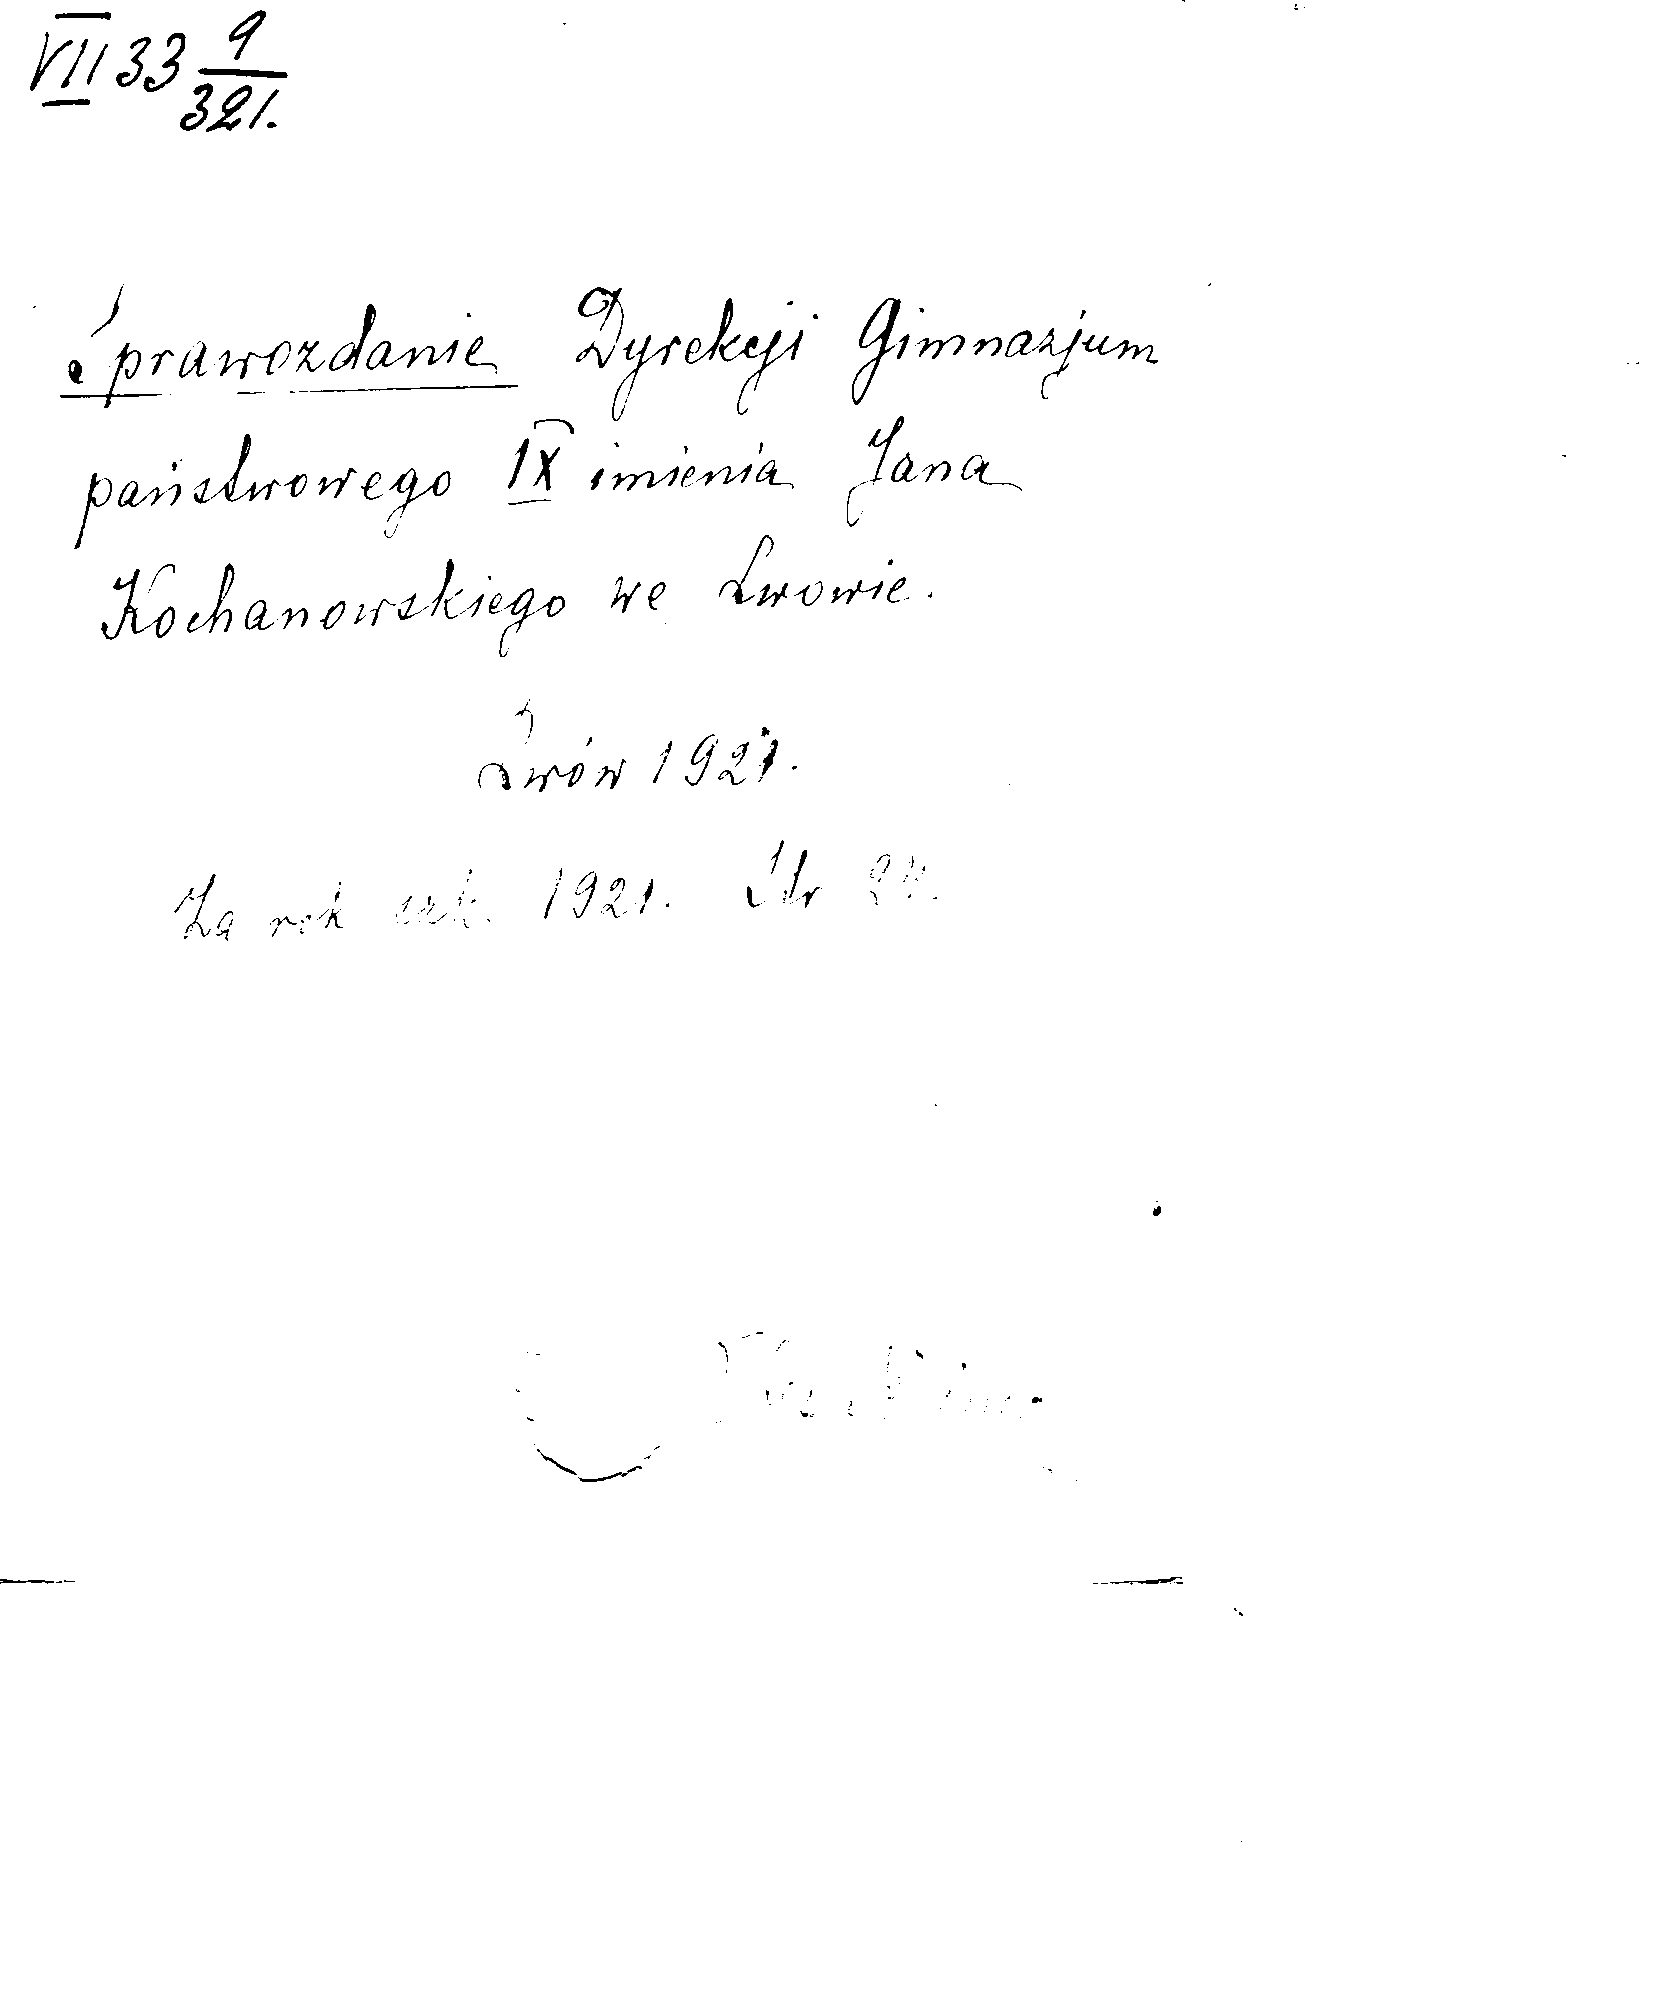 VII 33 9/321.
Sprawozdanie Dyrekcji Gimnazjum
państwowego IX imienia Jana
Kochanowskiego we Lwowie.
Lwów 1921.
Za rok szk. 1921. Str 24.